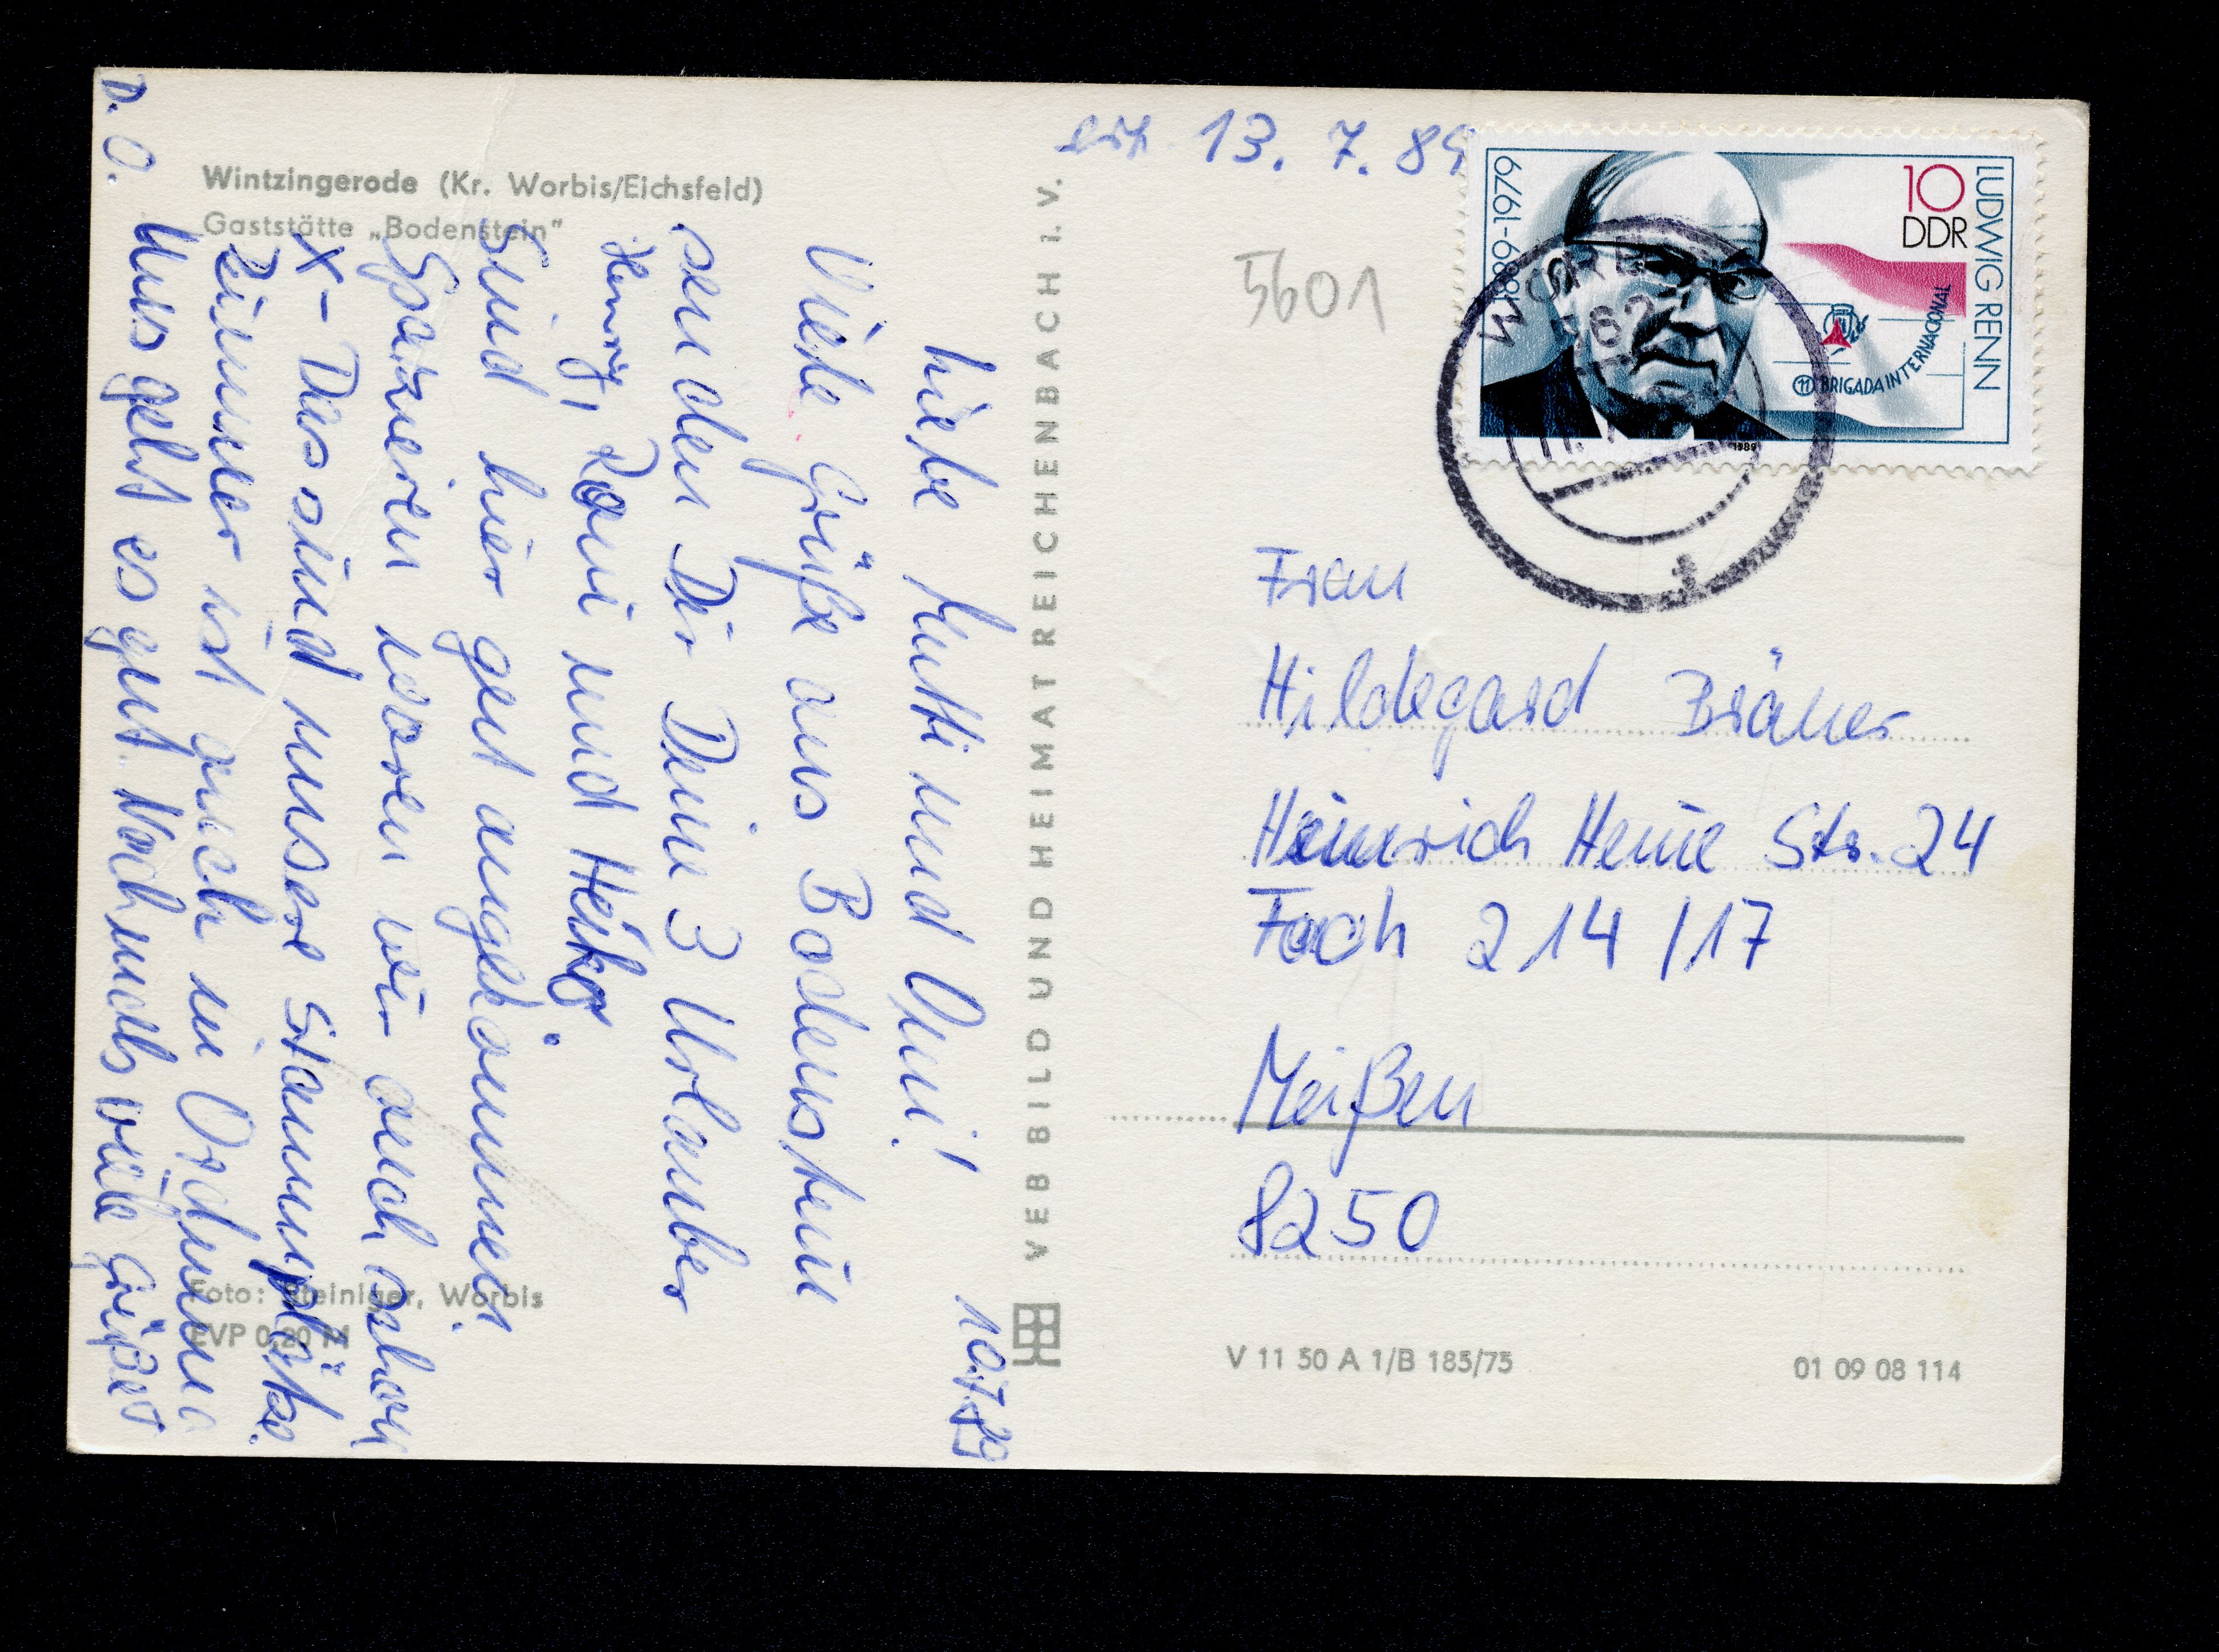 Wintzingerode (Kr. Worbis/Eichsfeld)
Gaststätte „Bodenstein"
10.7.89
Liebe Mutti und Omi!
Viele Grüße aus Bodenstein
senden Dir Deine 3 Urlauber
Henry, Romi und Heiko.
Sind hier gut angekommen.
Spazieren waren wir auch schon
X - Das sind unsere Stammplätze.
Zimmer ist auch in Ordnung
Uns geht es gut. Nochmals viele Grüße
D. O.
Foto: Steiniger, Worbis
EVP 0,20 M
VEB BILD UND HEIMAT REICHENBACH I. V.
13. 7. 89
5601
LUDWIG RENN
1889-1979
10
DDR
11 BRIGADA INTERNACIONAL
1989
Frau
Hildegard Bräuer
Heinrich Heine Str. 24
Fach 214/17
Meißen
8250
V 11 50 A 1/B 185/75
01 09 08 114